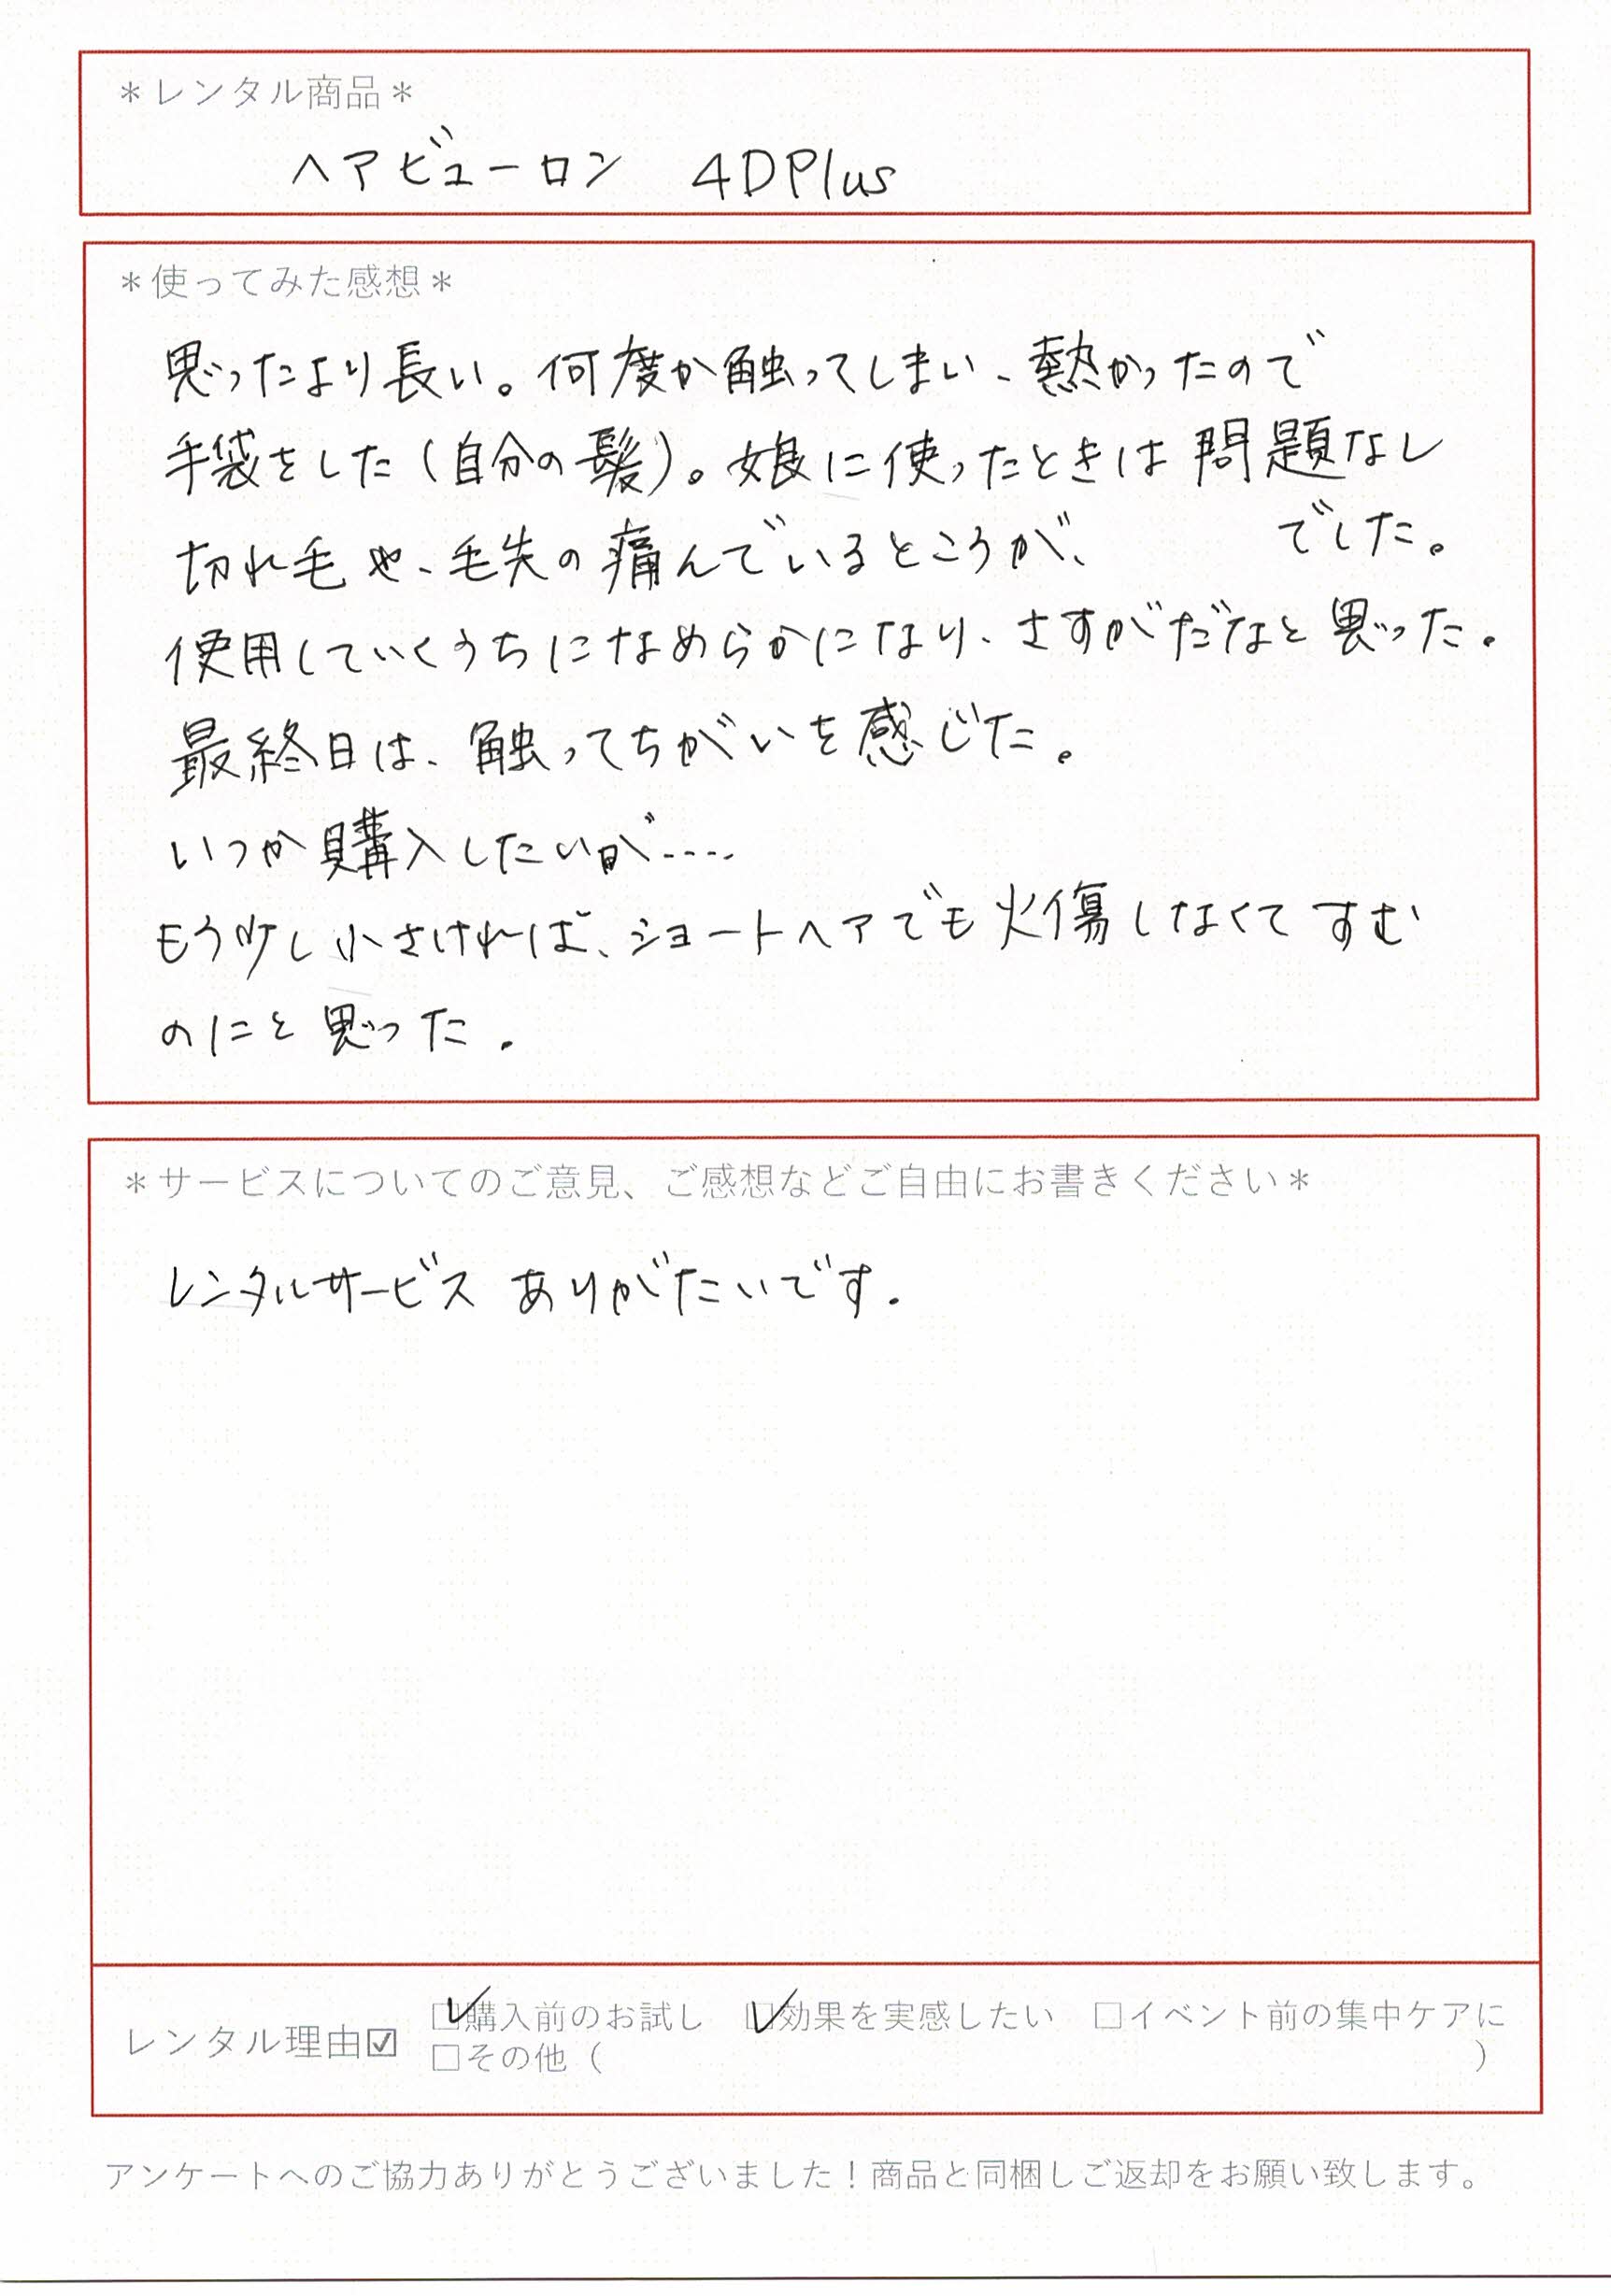 ＊レンタル商品＊
ヘアビューロン 4DPlus
＊使ってみた感想＊
思ったより長い。何度か触ってしまい、熱かったので
手袋をした(自分の髪)。娘に使ったときは問題なし
でした。
切れ毛や、毛先の痛んでいるところが、
使用していくうちになめらかになり、さすがだなと思った。
最終日は、触ってちがいを感じた。
いつか購入したいが....
もう少し小さければ、ショートヘアでも火傷しなくてすむ
のにと思った.
＊サービスについてのご意見、ご感想などご自由にお書きください＊
レンタルサービス ありがたいです.
レンタル理由☑ ☑購入前のお試し ☑効果を実感したい □イベント前の集中ケアに
□その他（ ）
アンケートへのご協力ありがとうございました！商品と同梱しご返却をお願い致します。